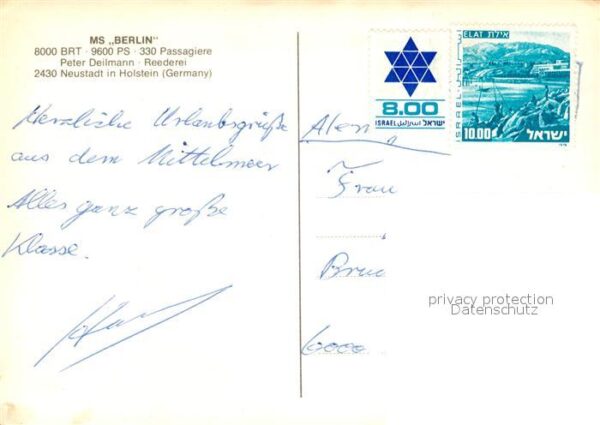 MS „BERLIN"
8000 BRT · 9600 PS · 330 Passagiere
Peter Deilmann · Reederei
2430 Neustadt in Holstein (Germany)
Herzliche Urlaubsgrüße
aus dem Mittelmeer
Alles ganz große
Klasse.
8.00
ISRAEL اسرائيل ישראל
ELAT אילת
ISRAEL اسرائيل
10.00 ישראל
Frau
6000
privacy protection
Datenschutz